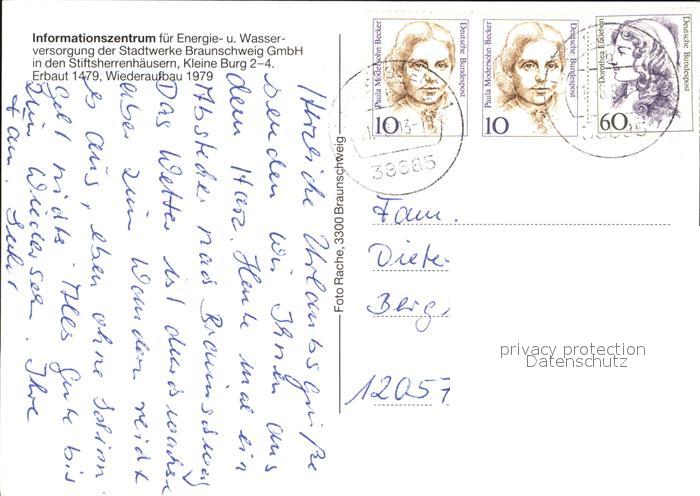 Informationszentrum für Energie- u. Wasser-
versorgung der Stadtwerke Braunschweig GmbH
in den Stiftsherrenhäusern, Kleine Burg 2–4.
Erbaut 1479, Wiederaufbau 1979
Herzliche Urlaubsgrüße
senden wir Ihnen aus
dem Harz. Heute mal ein
Abstecher nach Braunschweig
Das Wetter ist durchwachsen
aber zum Wandern reicht
es aus, eben ohne Schirm
geht nichts. Alles Gute bis
zum Wiedersehn. Ihre
Fam.
Foto Rache, 3300 Braunschweig
Paula Modersohn-Becker
10
Deutsche Bundespost
Paula Modersohn-Becker
10
Deutsche Bundespost
Dorothea Erxleben
60
Deutsche Bundespost
38685
Fam.
Diete
Berg
12057
privacy protection
Datenschutz